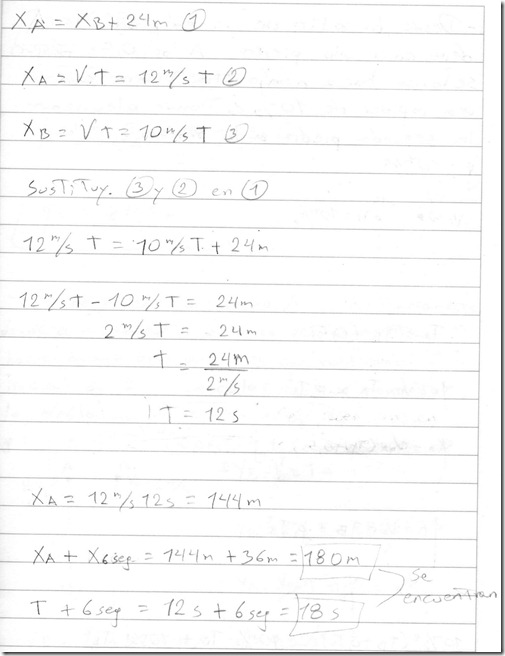 XA = XB + 24m ①
XA = V.T = 12 m/s T ②
XB = V T = 10 m/s T ③
SusTiTuy. ③ y ② en ①
12 m/s T = 10 m/s T + 24m
12 m/s T - 10 m/s T = 24m
2 m/s T = 24m
T = 24m / 2 m/s
T = 12 s
XA = 12 m/s 12s = 144m
XA + X6seg = 144m + 36m = 180m
T + 6seg = 12s + 6seg = 18 s
Se encuentran